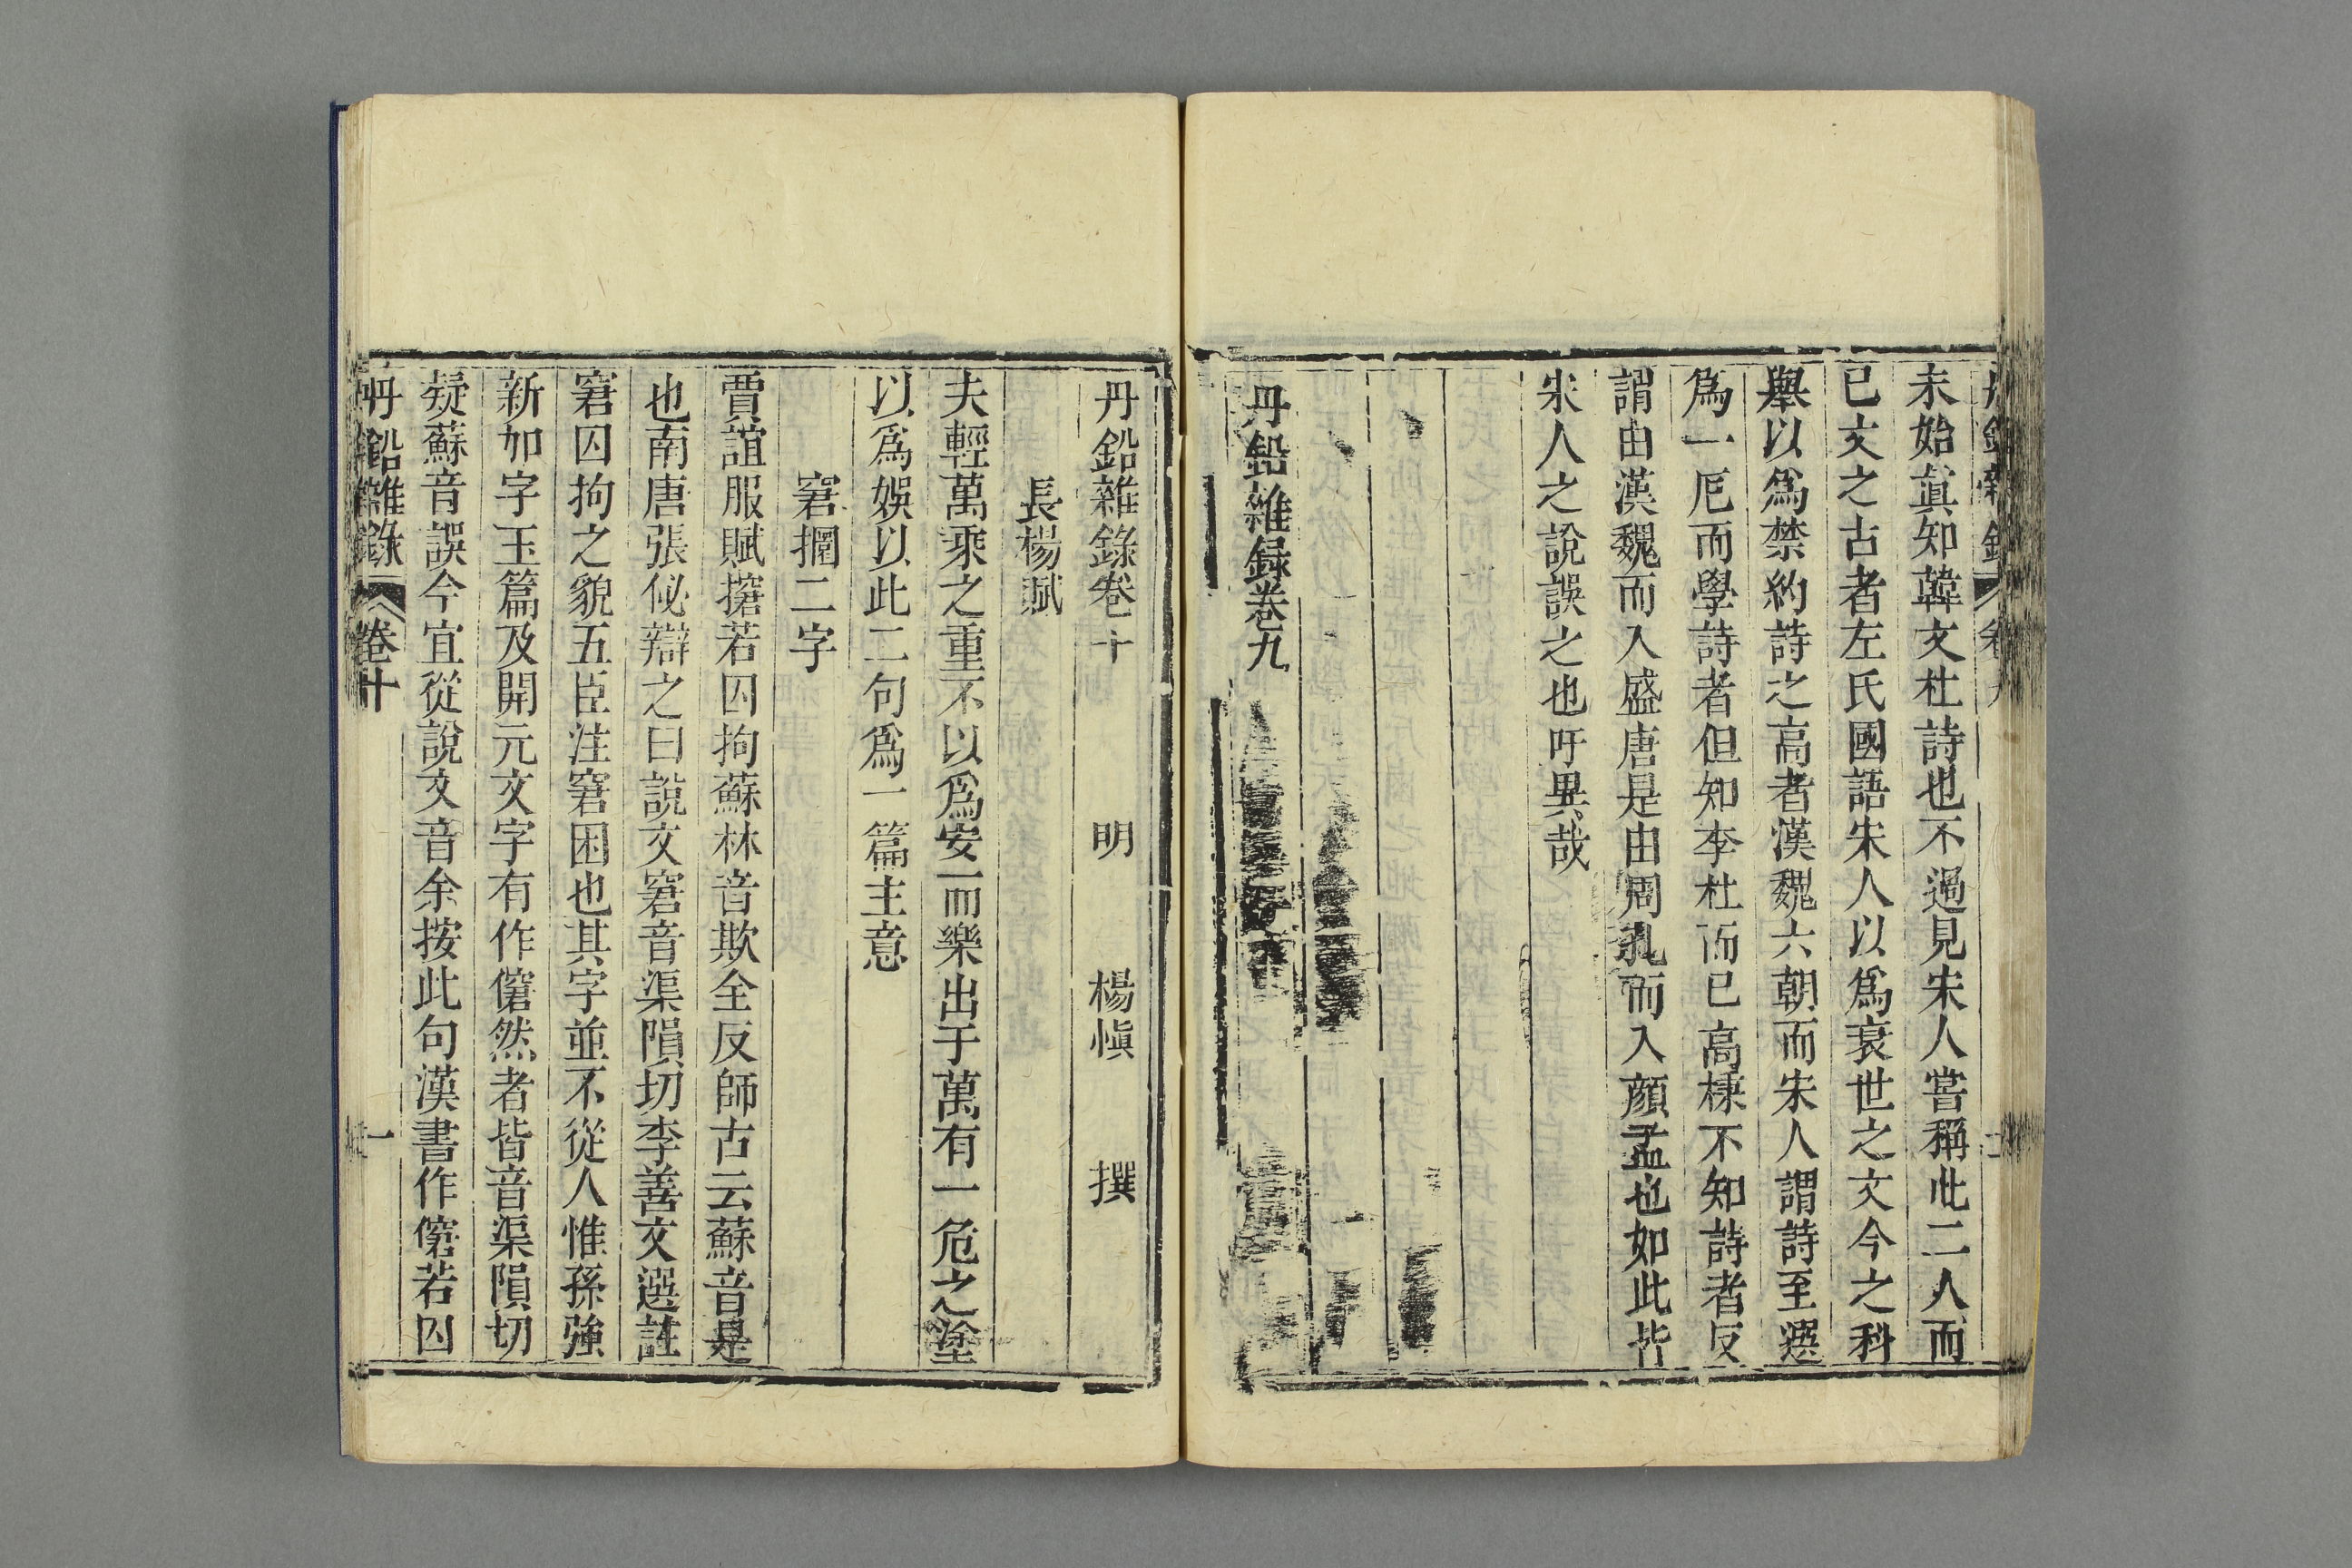 未始眞知韓文杜詩也不過見宋人嘗稱此二人而
已文之古者左氏國語宋人以爲衰世之文今之科
舉以爲禁約詩之高者漢魏六朝而宋人謂詩至選
爲一厄而學詩者但知李杜而已高棅不知詩者反
謂由漢魏而入盛唐是由周孔而入顏孟也如此皆
宋人之說誤之也吁異哉
丹鉛雜録卷九
丹鉛雜錄卷十　明　楊愼　撰
長楊賦
夫輕萬乘之重不以爲安而樂出于萬有一危之塗
以爲娛以此二句爲一篇主意
窘攌二字
賈誼服賦㩒若囚拘蘇林音欺全反師古云蘇音是
也南唐張佖辯之曰說文窘音渠隕切李善文選註
窘囚拘之貌五臣注窘困也其字並不從人惟孫強
新加字玉篇及開元文字有作僒然者皆音渠隕切
疑蘇音誤今宜從說文音余按此句漢書作僒若囚
丹鉛雜錄　卷十　一